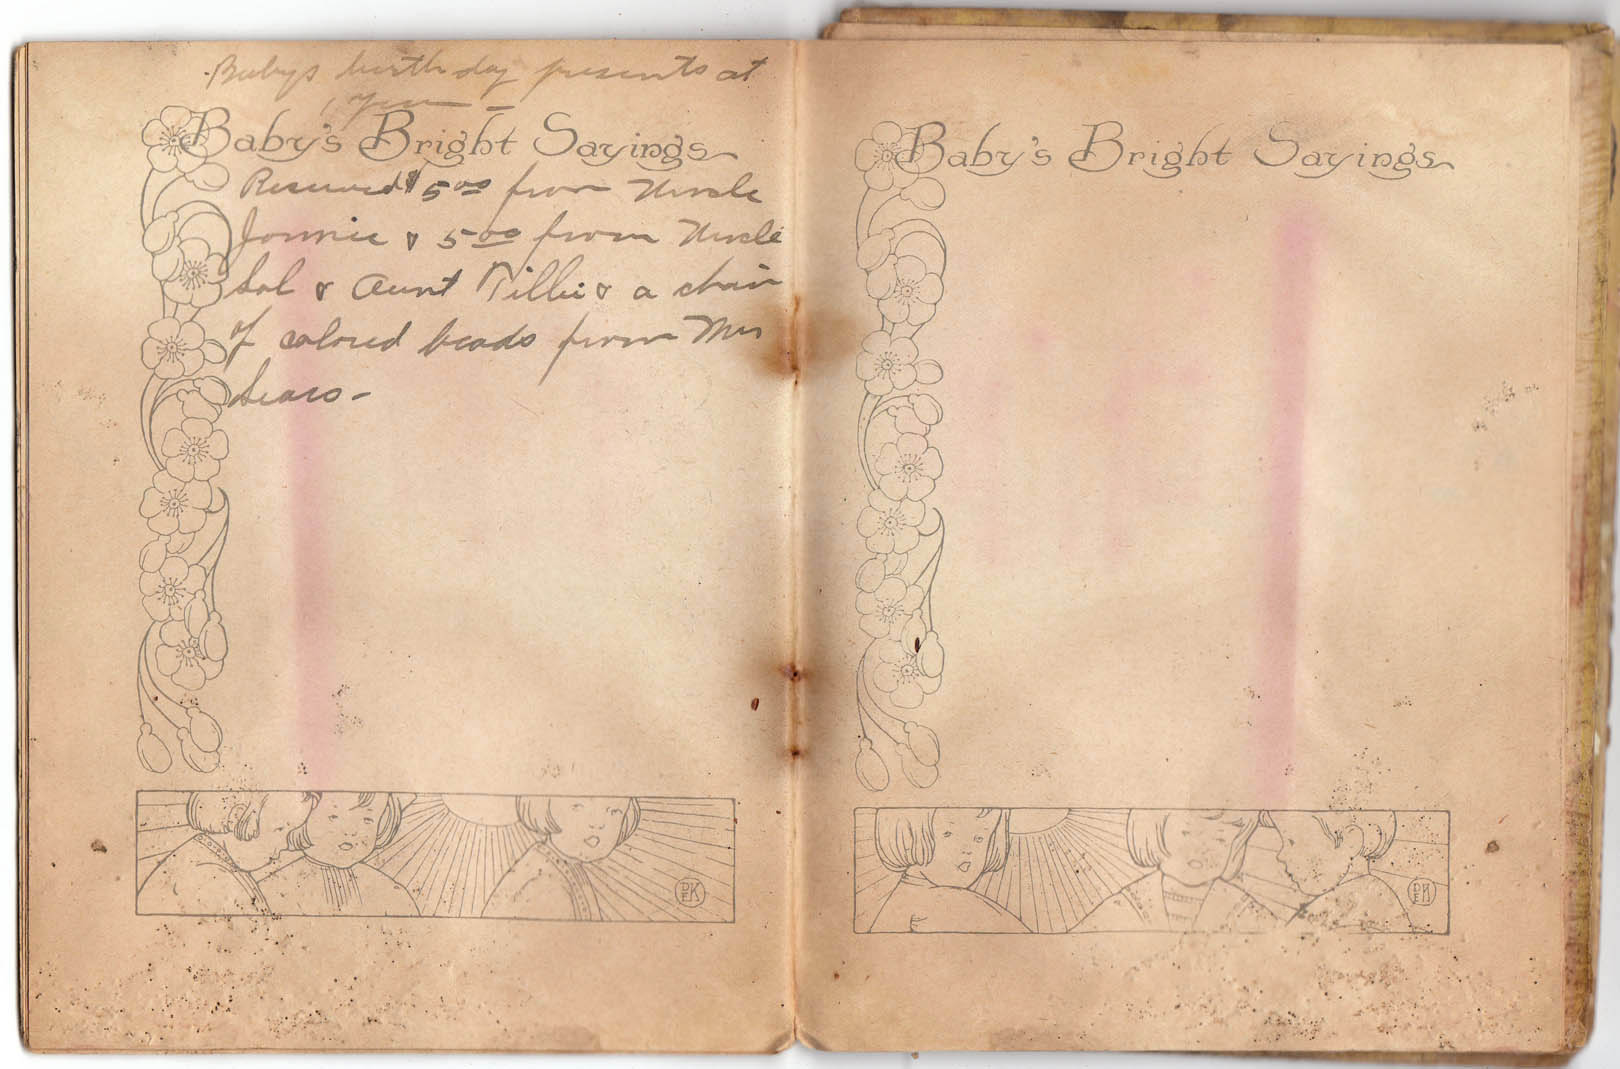 Babys birthday presents at
1 Year —
Baby's Bright Sayings
Received $5.00 from Uncle
Jonnie & 5.00 from Uncle
Sol & Aunt Tillie & a chain
of colored beads from Mrs
Sears-
Baby's Bright Sayings